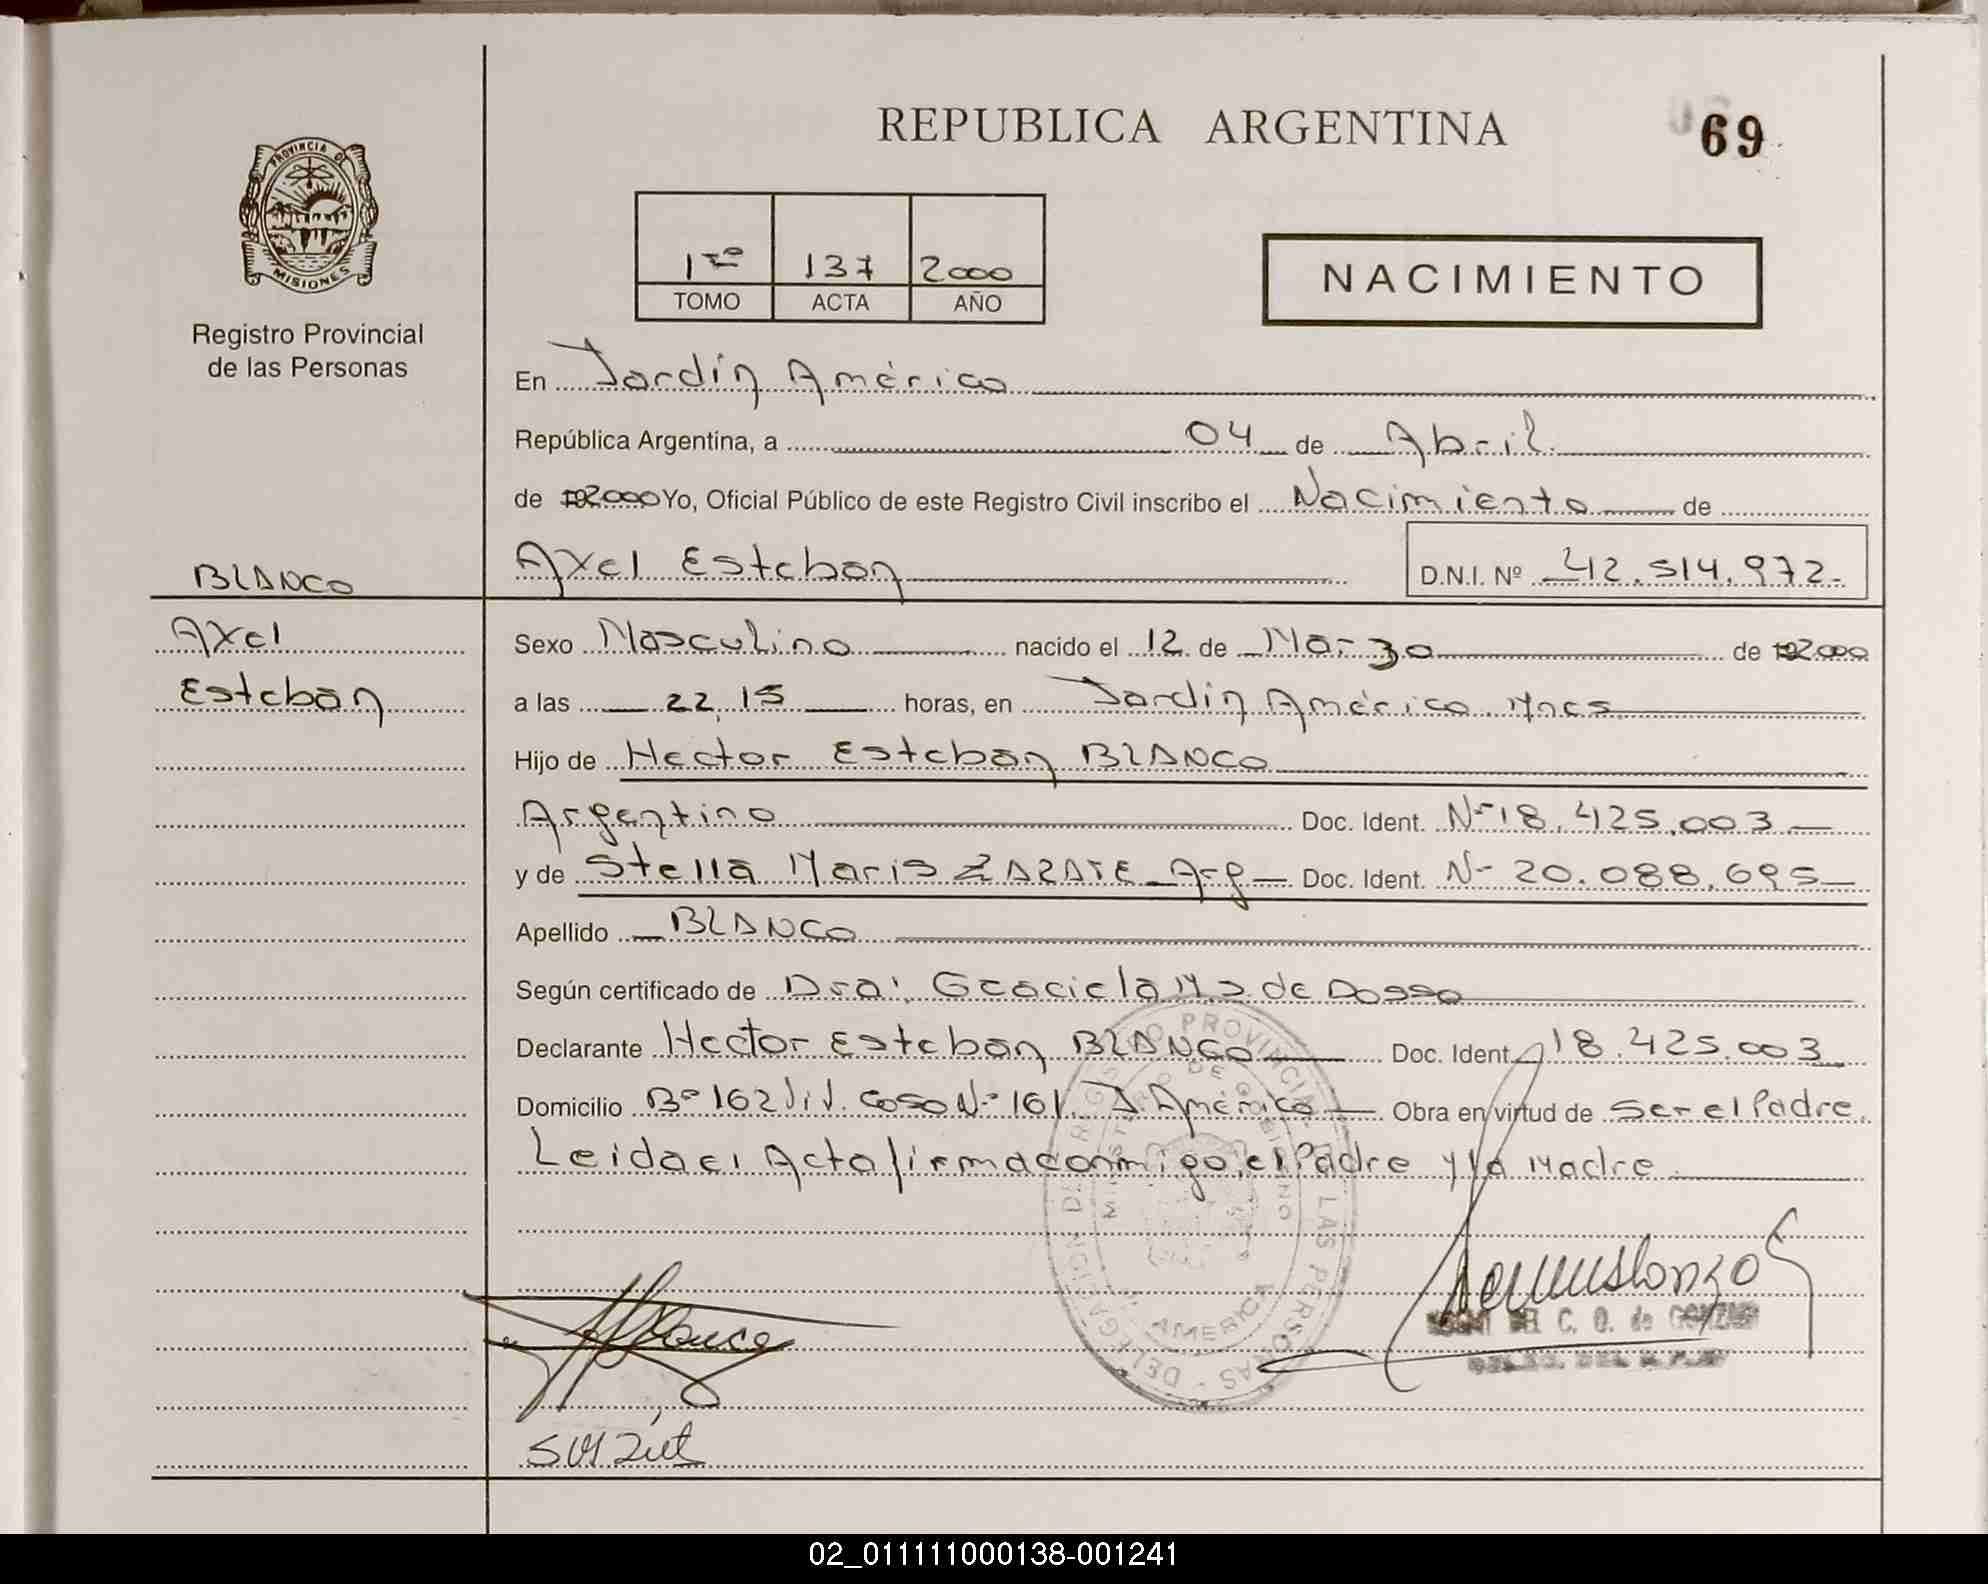 PROVINCIA DE
MISIONES
Registro Provincial
de las Personas
REPUBLICA ARGENTINA
69
1ro 137 2000
TOMO ACTA AÑO
NACIMIENTO
En Jardín América
República Argentina, a 04 de Abril
de 2000 Yo, Oficial Público de este Registro Civil inscribo el Nacimiento de
BLANCO
Axel Esteban D.N.I. Nº 42.514.972-
Axel
Esteban
Sexo Masculino nacido el 12 de Marzo de 2000
a las 22,15 horas, en Jardín América Mnes
Hijo de Hector Esteban BLANCO
Argentino Doc. Ident. Nº 18.425.003
y de Stella Maris ZARATE Arg Doc. Ident. Nº 20.088.695
Apellido BLANCO
Según certificado de Dra: Graciela M. de Dosso
Declarante Hector Esteban BLANCO Doc. Ident 18.425.003
Domicilio Bº 162 Viv. Casa Nº 161. J. América Obra en virtud de ser el Padre.
Leida el Acta firma conmigo, el Padre y la Madre.
DELEGACION DE REGISTRO PROVINCIAL DE LAS PERSONAS
MINISTERIO DE GOBIERNO
AMERICA
C. O. de
02_011111000138-001241